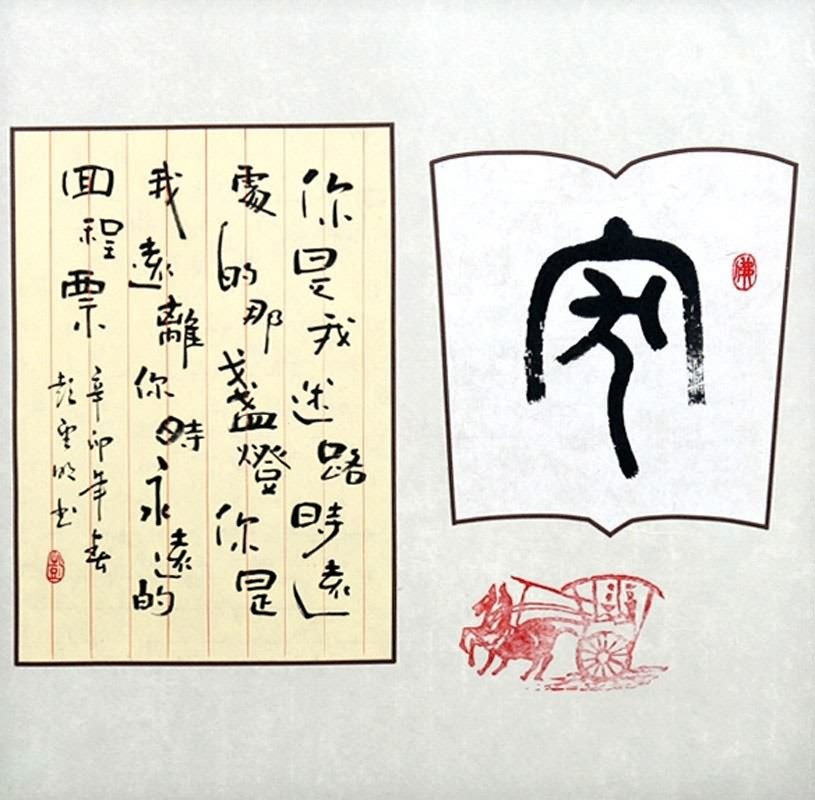 佛
你是我迷路時遠
處的那盞燈你是
我遠離你時永遠的
回程票
辛卯年春
彭雲明书
彭